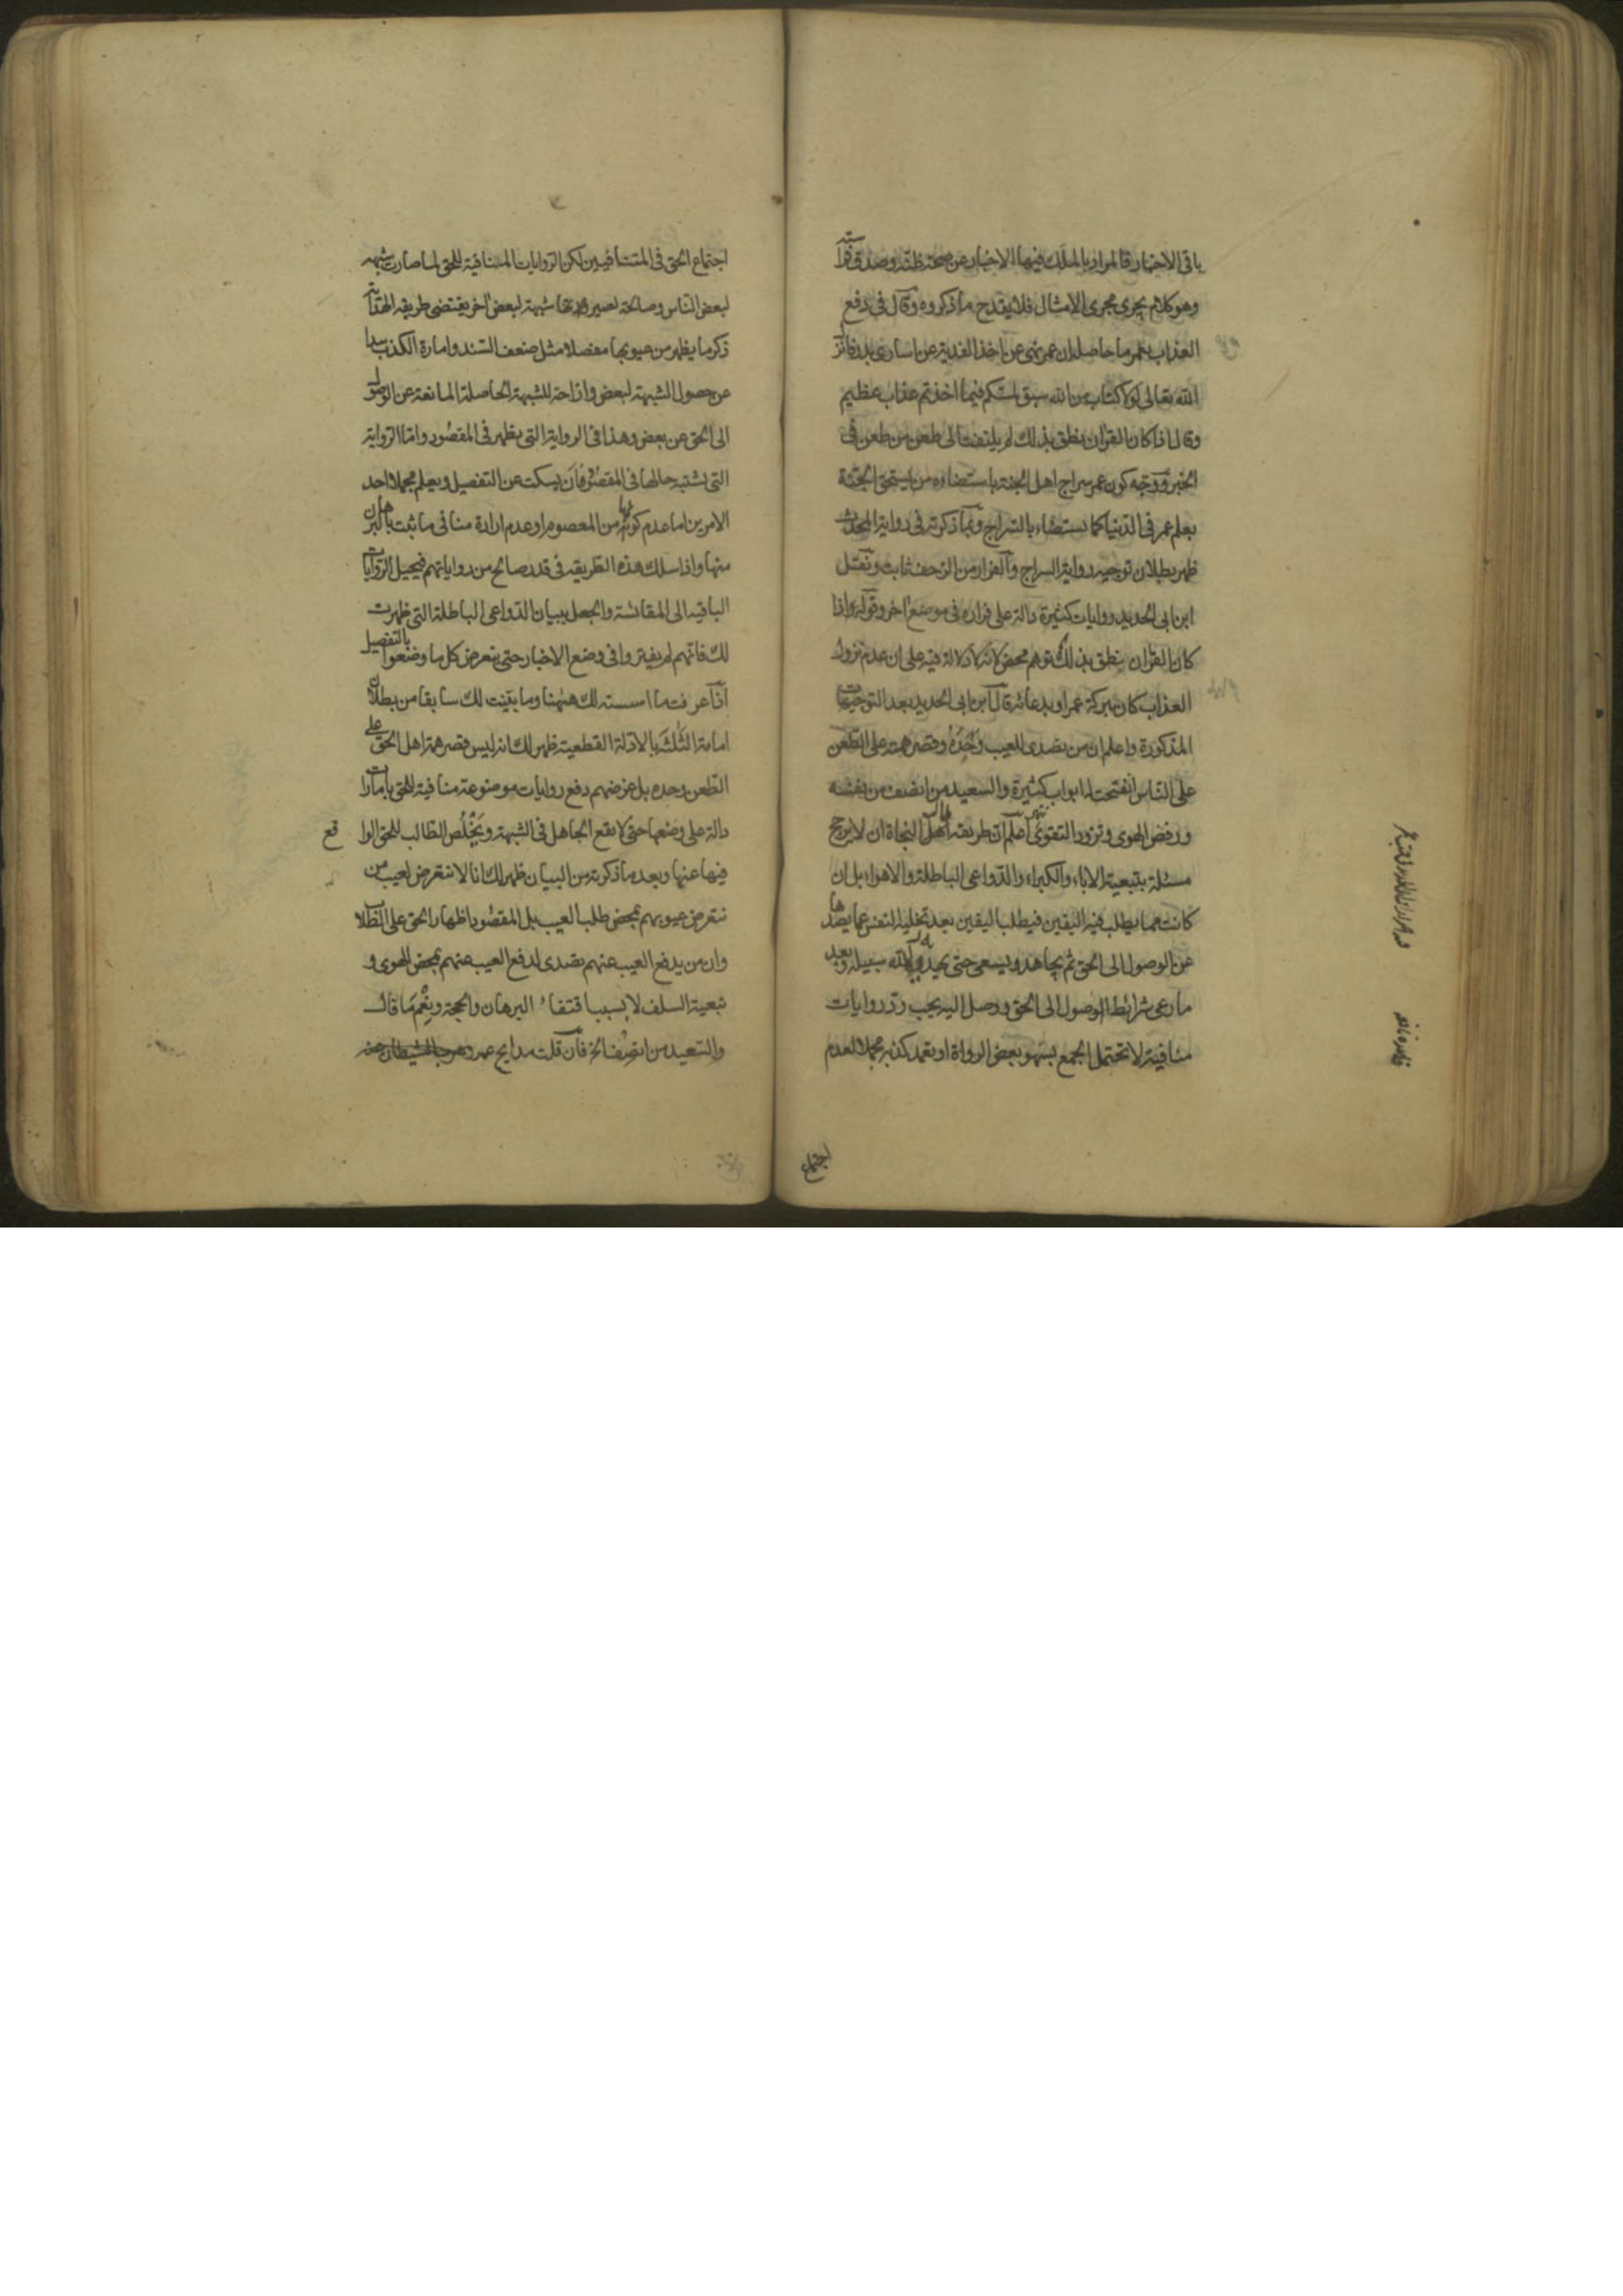 باقى الاخبار فالمراد بالملك فيها الاخبار عن صحة ظنه وصدق فراسته
وهو كلام يجرى مجرى الامثال فلا يقدح ما ذكروه وقال فى دفع
العذاب بعمر ما حاصله ان عمر نهى عن اخذ الفدية عن اسارى بدر فانزل
الله تعالى لولا كتاب من الله سبق لمسكم فيما اخذتم عذاب عظيم
وقال اذا كان القرآن ينطق بذلك لم يلتفت الى طعن من طعن فى
الخبر ووجه كون عمر سراج اهل الجنة باستضاءه من يستحق الجنة
بعلم عمر فى الدنيا كما يستضاء بالسراج وبما ذكرته فى رواية المحدث
ظهر بطلان توجيه رواية السراج والفرار من الزحف ثابت ونقل
ابن ابى الحديد روايات كثيرة دالة على فراره فى موضع اخر وقوله واذا
كان القرآن ينطق بذلك توهم محض لانه لا دلالة فيه على ان عدم نزول
العذاب كان ببركة عمر او بدعائه قال ابن ابى الحديد بعد التوجيهات
المذكورة واعلم ان من تصدى للعيب وجده وقصر همته على الطعن
على الناس انفتحت له ابواب كثيرة والسعيد من انصف من نفسه
ورفض الهوى وتزود التقوى انتهى اعلم ان طريقة اهل النجاة ان لا يرجح
مسئلة بتبعية الاباء والكبراء والدواعى الباطلة والاهواء بل ان
كانت مما يطلب فيه اليقين فيطلب اليقين بعد تخلية النفس عما يصدها
عن الوصول الى الحق ثم يجاهد ويسعى حتى يهديه الله سبيله وبعد
ما رعى شرائط الوصول الى الحق ووصل اليه يجب رد روايات
منافية لا تحتمل الجمع بسهو بعض الرواة او تعمد كذبه مجملا لعدم
اجتماع
اجتماع الحق فى المتنافيين لكن الروايات المنافية للحق لما صارت شبهه
لبعض الناس وصالحة لصيرورتها شبهة لبعض اخر يقتضى طريقه الهداية
ذكر ما يظهر من عيوبها مفصلا مثل ضعف السند وامارة الكذب سدا
عن حصول الشبهة لبعض وازاحة للشبهة الحاصلة المانعة عن الوصول
الى الحق عن بعض وهذا فى الرواية التى يظهر فى المقصود واما الرواية
التى يشتبه حالها فى المقصود فان يسكت عن التفصيل ويعلم مجملا احد
الامرين اما عدم كونها من المعصوم او عدم ارادة منافى ما ثبت بالبرهان
منها واذا سلك هذه الطريقه فى قدر صالح من رواياتهم فيحيل الروايات
الباقيه الى المقائسة والجعل ببيان الدواعى الباطلة التى ظهرت
لك فانهم لم يفتروا فى وضع الاخبار حتى يتعرض كل ما وضعوا بالتفصيل
اذا عرفت ما اسسته لك ههنا وما بينت لك سابقا من بطلان
امامة الثلثة بالادلة القطعية ظهر لك انه ليس قصر همة اهل الحق على
الطعن وحده بل غرضهم دفع روايات موضوعة منافية للحق بامارات
دالة على وضعها حتى لا يقع الجاهل فى الشبهة ويخلص الطالب للحق الواقع
فيها عنها وبعد ما ذكرته من البيان ظهر لك انا لا نتعرض لعيب من
نتعرض عيوبهم بمحض طلب العيب بل المقصود اظهار الحق على الطلاب
وان من يدفع العيب عنهم تصدى لدفع العيب عنهم بمحض الهوى و
تبعية السلف لا بسبب اقتفاء البرهان والحجة ونعم ما قال
والسعيد من انصف الخ فان قلت مدايح عمر